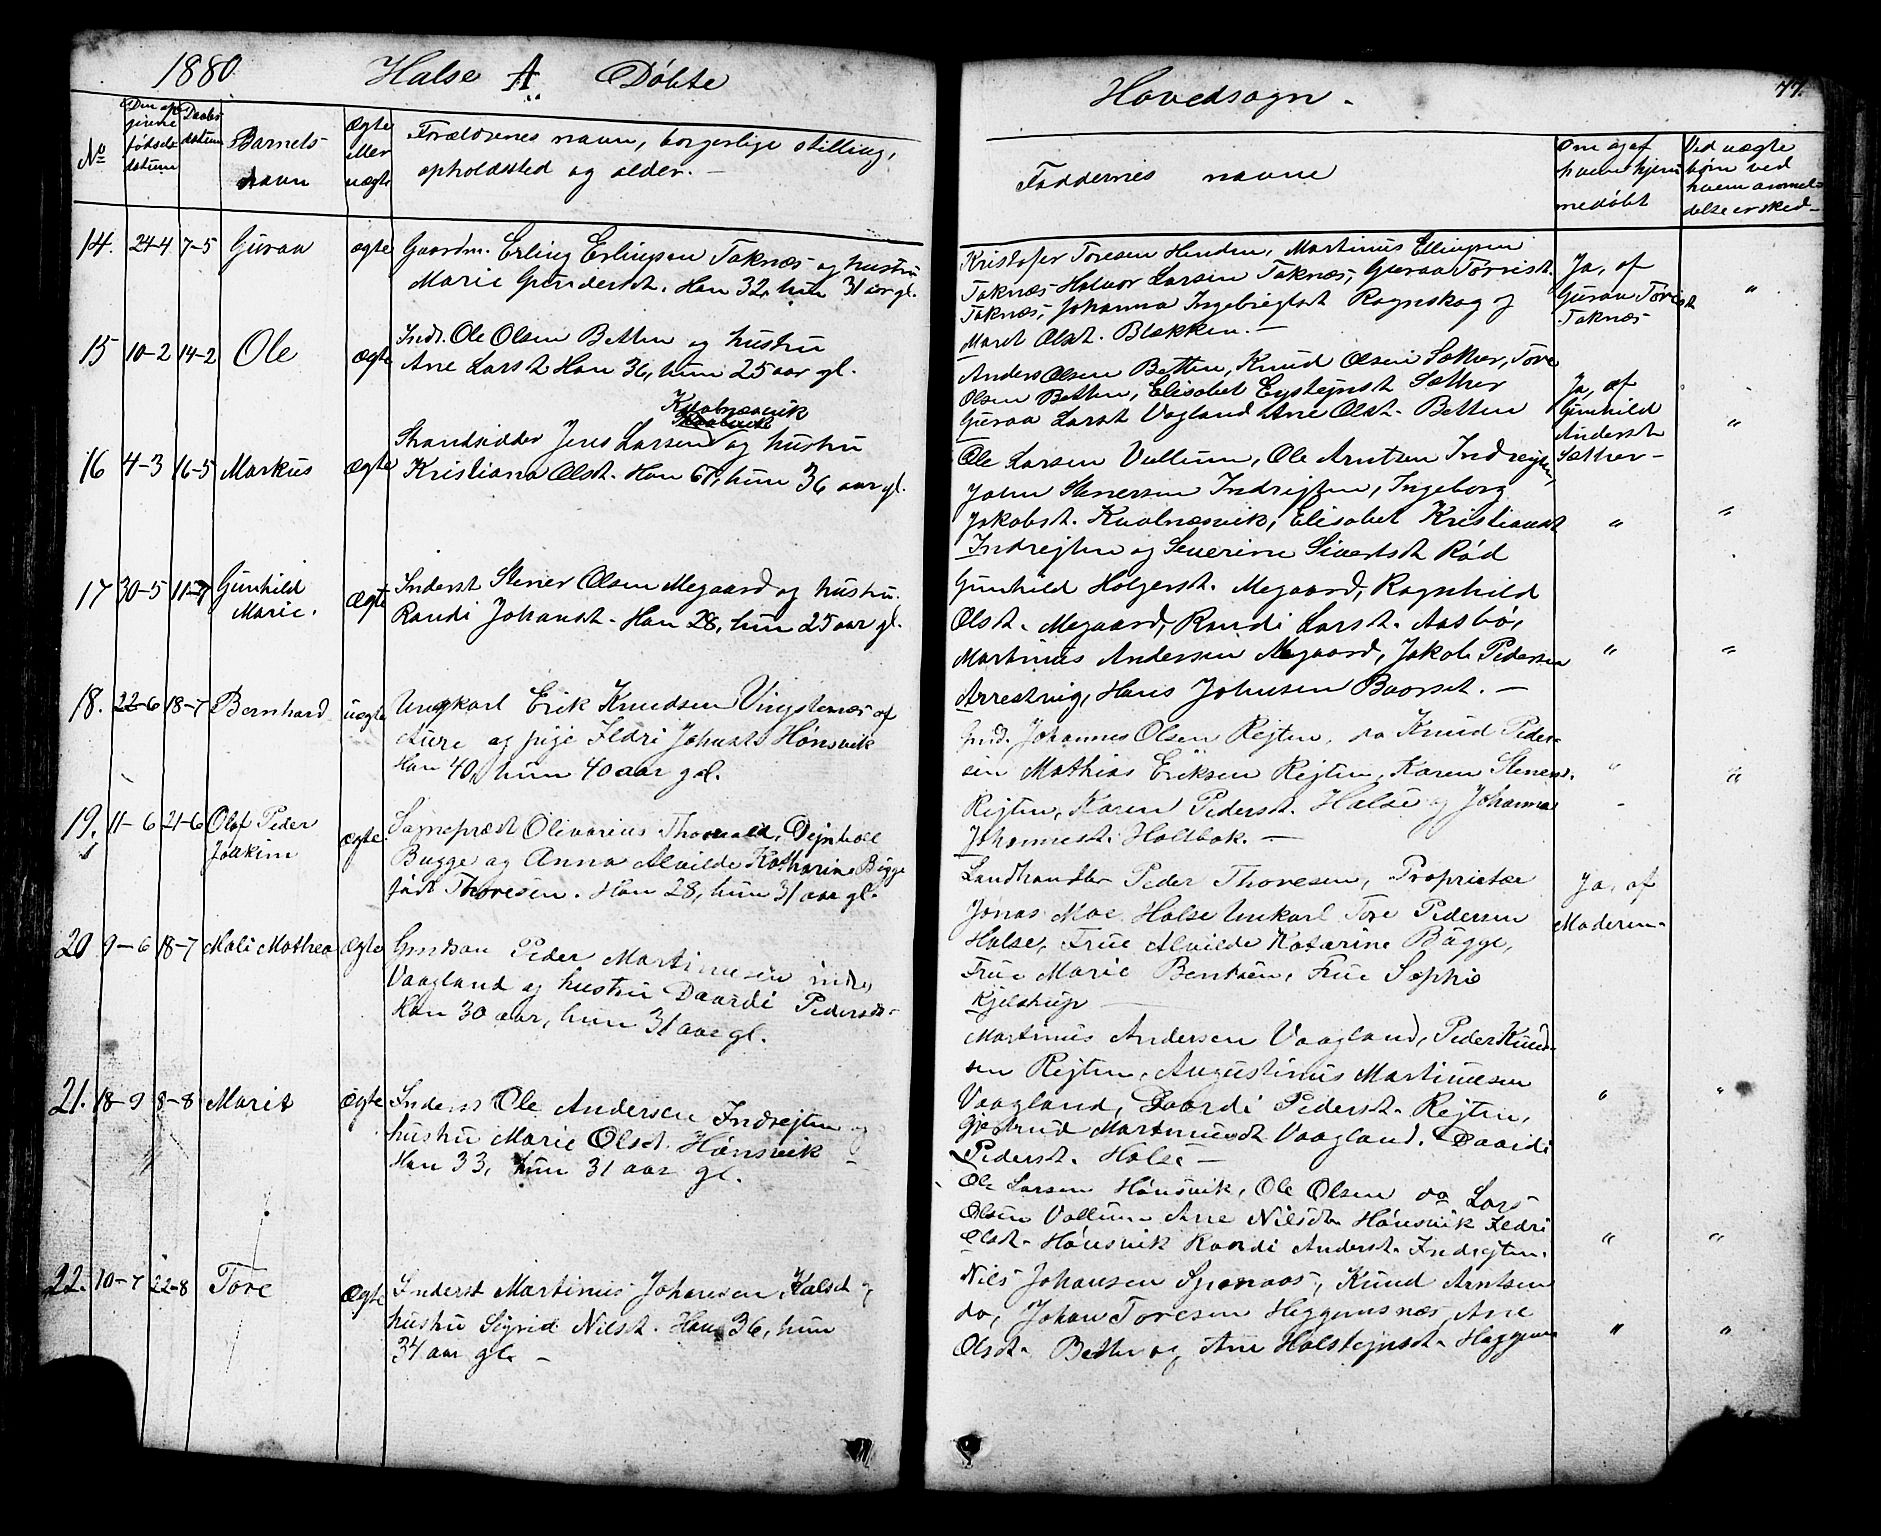 1880. Halse A Døbte
No Den opgivne fødselsdatum Daabsdatum Barnets navn Ægte eller uægte Forældrenes navn, borgerlige stilling, opholdssted og alder. —
14. 24-4 7-5 Guraa ægte Gaardm. Erling Erlingsen Taknæs og hustru
Marie Gundersdt. Han 32, hun 31 aar gl.
15 10-2 14-2 Ole ægte Inds. Ole Olsen Betten og hustru
Ane Larsdt Han 36, hun 25 aar gl.
Kvalnæsvik
16 4-3 16-5 Markus ægte Strandsidder Jens Larsen og hustru
Kristiana Olsdt. Han 67, hun 36 aar gl.
17 30-5 11-7 Gunhild Marie. Ægte Inderst Stener Olsen Megaard og hustru.
Randi Johansdt. Han 28, hun 25 aar gl.
18. 22-6 18-7 Bernhard uægte Ungkarl Erik Knudsen Vingstenæs af
Aure og pige Ildri Johnsdt Hønsvik
Han 40, hun 40 aar gl.
19. 11-6 21-6 Olaf Peder Joakim ægte. Sognepræst Olivarius Thorvald, Dejnboll
Bugge og Anna Alvilde Katharine Bugge
født Thoresen. Han 28, hun 31 aar gl.
20 9-6 18-7 Mali Mathea Ægte Peder Martinusen indre
Vaagland og hustru Daardi Pedersdt.
Han 30 aar, hun 31 aar gl.
21. 18-9 8-8 Marit Ægte Inderst Ole Andersen Indrejten og
hustru Marie Olsdt. Hønsvik —
Han 33, hun 31 aar gl.
22. 10-7 22-8 Tore Ægte Inderst Martinus Johansen, Halset og
hustru Sigrid Nilsdt. Han 36, hun
34 aar gl. —
Hovedsogn. 77.
Faddernes navne
Om og af hvem hjemmedøbt
Ved uægte børn ved hvem anmeldelse er sked —
Kristofer Toresen Henden, Martinus Ellingsen
Taknæs Halvor Larsen Taknæs, Guraa Torrisdt.
Taknæs, Johanna Ingebrigtsdt Rognskog og
Maret Olsdt. Blekken. —
Ja, af
Guraa Torisdt
Taknæs "
Anders Olsen Betten, Knud Olsen Sæther, Tore
Olsen Betten, Elisabet Eystejnsdt Sæther
Guraa Larsdt Vagland Ane Olsdt. Betten
Ja, af
Gunhild
Andersdt
Sæther — "
Ole Larsen Vullum, Ole Arntsen Indrejten,
John Stenersen Indrejten, Ingeborg
Jakobsdt. Kvalnæsvik, Elisabet Kristiansdt
Indrejten og Severine Sivertsdt Rød
" "
Gunhild Holgersdt. Megaard, Ragnhild
Olsdt. Megaard, Randi Larsdt. Aasbø,
Martinus Andersen Megaard, Jakob Pedersen
Arrestvig, Hans Johnsen Baorset. —
" "
Johannes Olsen Rejten, do Knud Peder-
sen Mathias Eriksen Rejten, Karen Stenersdt.
Rejten, Karen Pedersdt. Halse og Johanna
Johannesdt. Holtbak. —
" "
Landhandler Peder Thoresen, Proprietær
Jonas Moe Halse Unkarl Tore Pedersen
Halse, Frue Alvilde Katarine Bugge,
Frue Marie Bentsen, Frue Sophie
Kjelstrup
Ja, af
Moderen.
Martinus Andersen Vaagland, Peder Knud-
sen Rejten, Augustinus Martinusen
Vaagland, Daardi Pedersdt. Rejten,
Gjertrud Martinusdt Vaagland. Daardi
Pedersdt. Halse —
" "
Ole Larsen Hønsvik, Ole Olsen do Lars
Olsen Vallum Ane Nilsdt. Hønsvik Ildri
Olsdt. Hønsvik Randi Andersdt. Indrejten.
" "
Nils Johansen Knud Arntsen
do, Johan Toresen Heggemsnæs, Ane
Olsdt. Betten og Ane Halstejnsdt. Heggem
" "